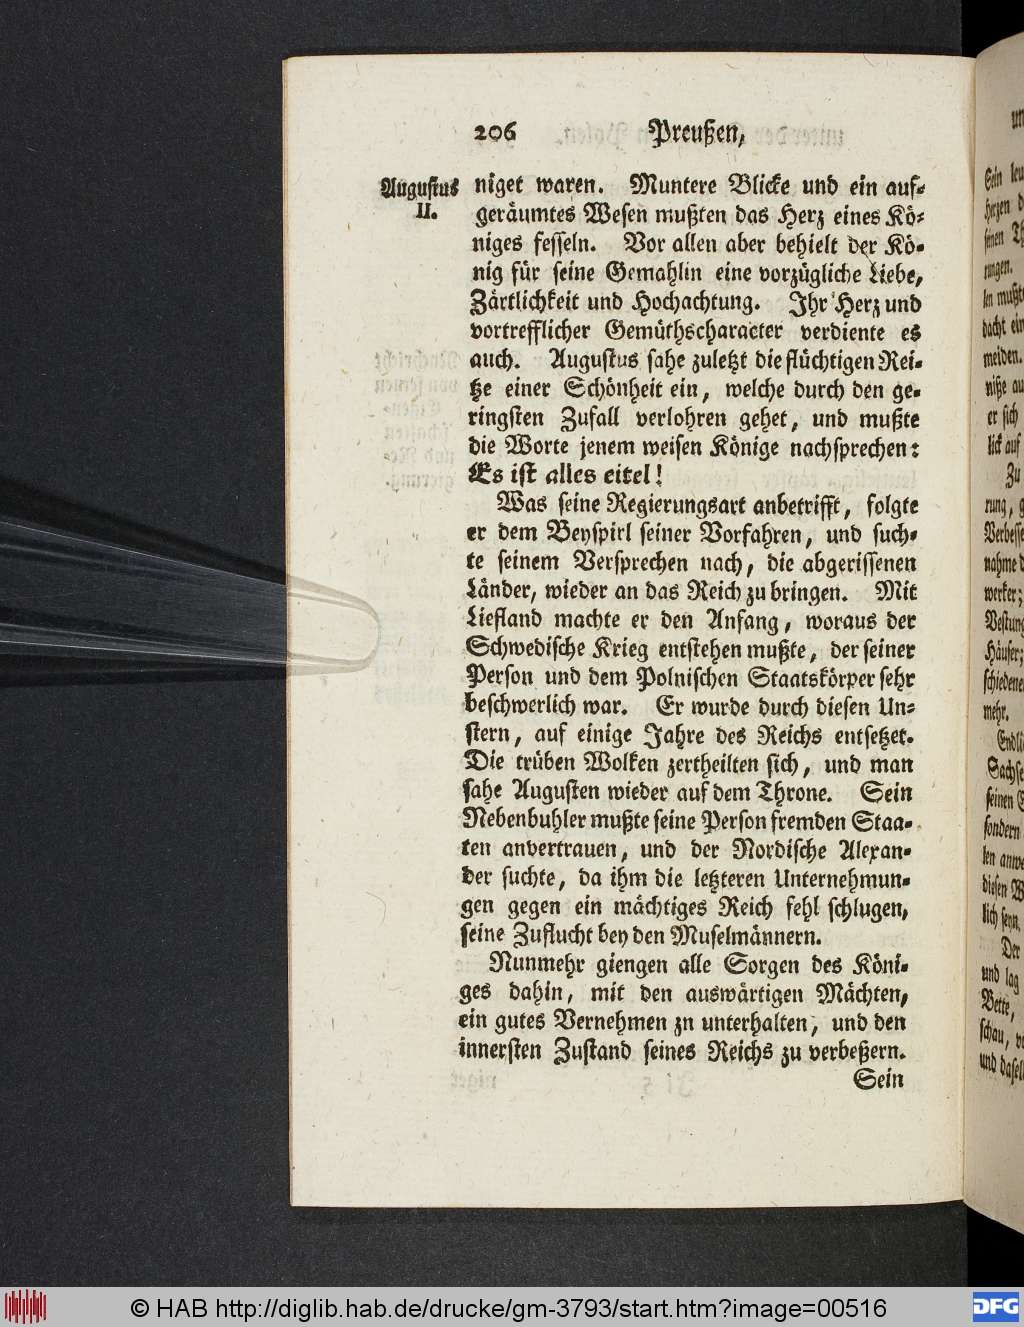 206 Preußen,
Augustus
II.
niget waren. Muntere Blicke und ein auf-
geräumtes Wesen mußten das Herz eines Kö-
niges fesseln. Vor allen aber behielt der Kö-
nig für seine Gemahlin eine vorzügliche Liebe,
Zärtlichkeit und Hochachtung. Ihr Herz und
vortrefflicher Gemüthscharacter verdiente es
auch. Augustus sahe zuletzt die flüchtigen Rei-
tze einer Schönheit ein, welche durch den ge-
ringsten Zufall verlohren gehet, und mußte
die Worte jenem weisen Könige nachsprechen:
Es ist alles eitel!
Was seine Regierungsart anbetrifft, folgte
er dem Beyspirl seiner Vorfahren, und such-
te seinem Versprechen nach, die abgerissenen
Länder, wieder an das Reich zu bringen. Mit
Liefland machte er den Anfang, woraus der
Schwedische Krieg entstehen mußte, der seiner
Person und dem Polnischen Staatskörper sehr
beschwerlich war. Er wurde durch diesen Un-
stern, auf einige Jahre des Reichs entsetzet.
Die trüben Wolken zertheilten sich, und man
sahe Augusten wieder auf dem Throne. Sein
Nebenbuhler mußte seine Person fremden Staa-
ten anvertrauen, und der Nordische Alexan-
der suchte, da ihm die letzteren Unternehmun-
gen gegen ein mächtiges Reich fehl schlugen,
seine Zuflucht bey den Muselmännern.
Nunmehr giengen alle Sorgen des Köni-
ges dahin, mit den auswärtigen Mächten,
ein gutes Vernehmen zn unterhalten, und den
innersten Zustand seines Reichs zu verbeßern.
Sein
© HAB http://diglib.hab.de/drucke/gm-3793/start.htm?image=00516
DFG